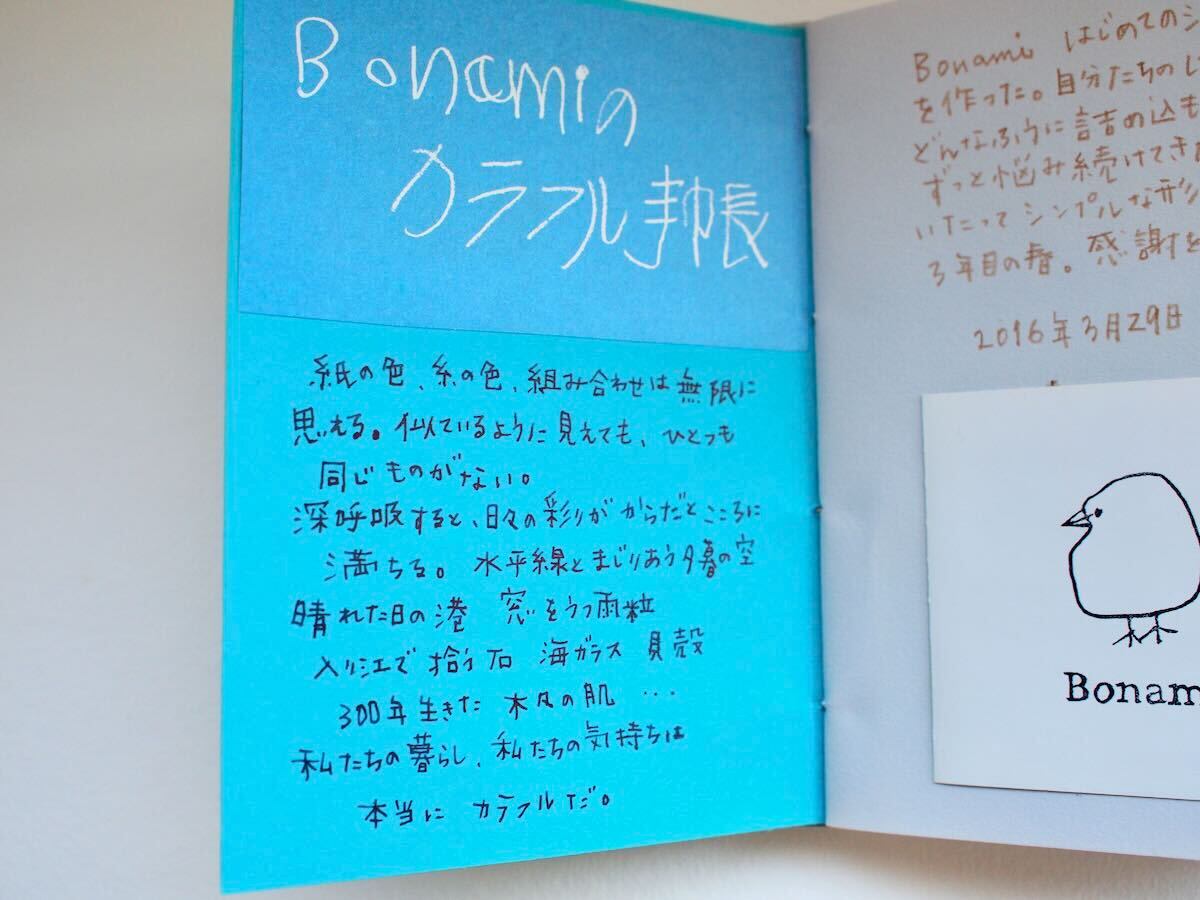 Bonamiの
カラフル手帳
紙の色、糸の色、組み合わせは無限に
思える。似ているように見えても、ひとつも
同じものがない。
深呼吸すると、日々の彩りがからだとこころに
満ちる。水平線とまじりあう夕暮の空
晴れた日の港 窓をうつ雨粒
入り江で拾う石 海ガラス 貝殻
300年生きた 木々の肌 …
私たちの暮らし、私たちの気持ちは
本当に カラフルだ。
Bonami はじめてのシ
を作った。自分たちのし
どんなふうに詰め込も
ずっと悩み続けてきた
いたってシンプルな形
3年目の春。感謝を
2016年3月29日
Bonam